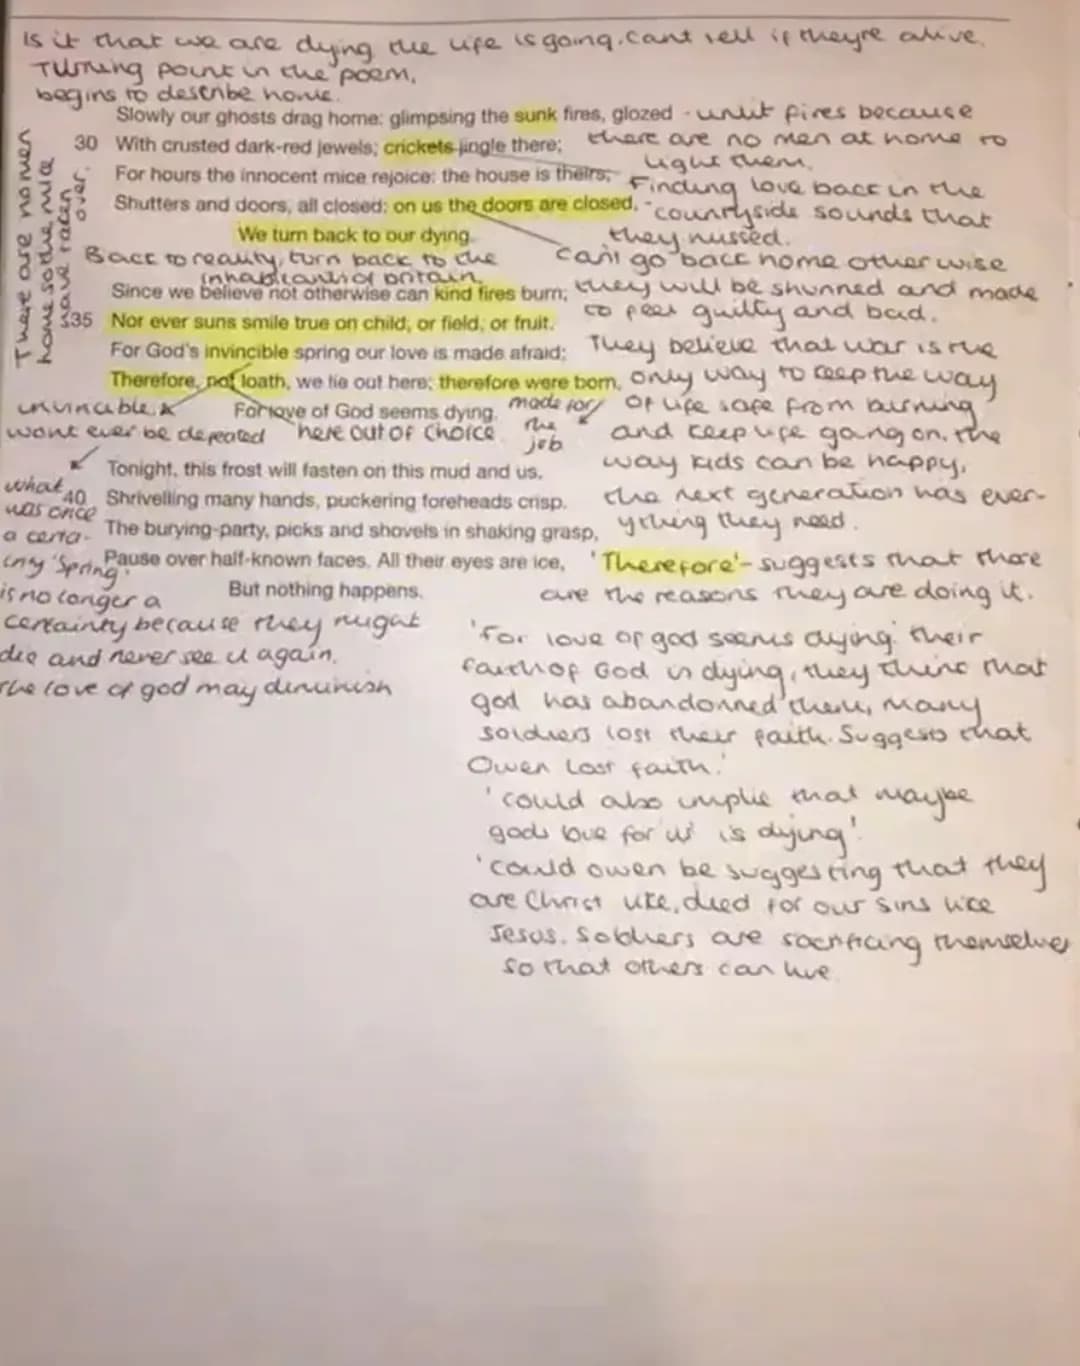 Is it that we are dying the life is going. cant tell if theyre alive.
Turning point in the poem,
begins to describe home.
Slowly our ghosts drag home: glimpsing the sunk fires, glozed - unlit fires because
30 With crusted dark-red jewels; crickets jingle there; there are no men at home to
light them.
For hours the innocent mice rejoice: the house is theirs; Finding love back in the
Shutters and doors, all closed: on us the doors are closed, - countryside sounds that
We turn back to our dying. they missed.
There are no men
home so the mice
have taken
over.
Back to reality, turn back to the cant go back home otherwise
inhabitants of britain
Since we believe not otherwise can kind fires burn; they will be shunned and made
35 Nor ever suns smile true on child, or field, or fruit. to feel guilty and bad.
For God's invincible spring our love is made afraid; They believe that war is the
Therefore, not loath, we lie out here; therefore were born, only way to keep the way
invincible For love of God seems dying. made for of life safe from burning
wont ever be defeated here out of choice the job and keep life going on. the
Tonight, this frost will fasten on this mud and us, way kids can be happy,
what
40 Shrivelling many hands, puckering foreheads crisp. the next generation has ever-
was once
The burying-party, picks and shovels in shaking grasp, ything they need.
a certa-
inty 'Spring' Pause over half-known faces. All their eyes are ice, 'Therefore' - suggests that there
is no longer a But nothing happens. are the reasons they are doing it.
certainty because they might
die and never see it again.
The love of god may diminish
'For love of god seems dying' their
faith of God is dying, they think that
god has abandonned them, many
soldiers lost their faith. Suggests that
Owen lost faith.'
'could also implie that maybe
gods love for 'us' is dying'
'could owen be suggesting that they
are Christ like, died for our sins like
Jesus. Soldiers are sacrificing themselves
so that others can live